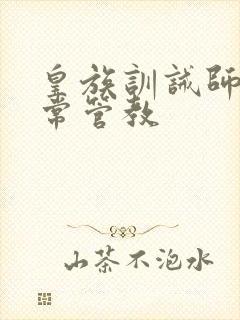 皇族訓誡師
常管教
山茶不泡水